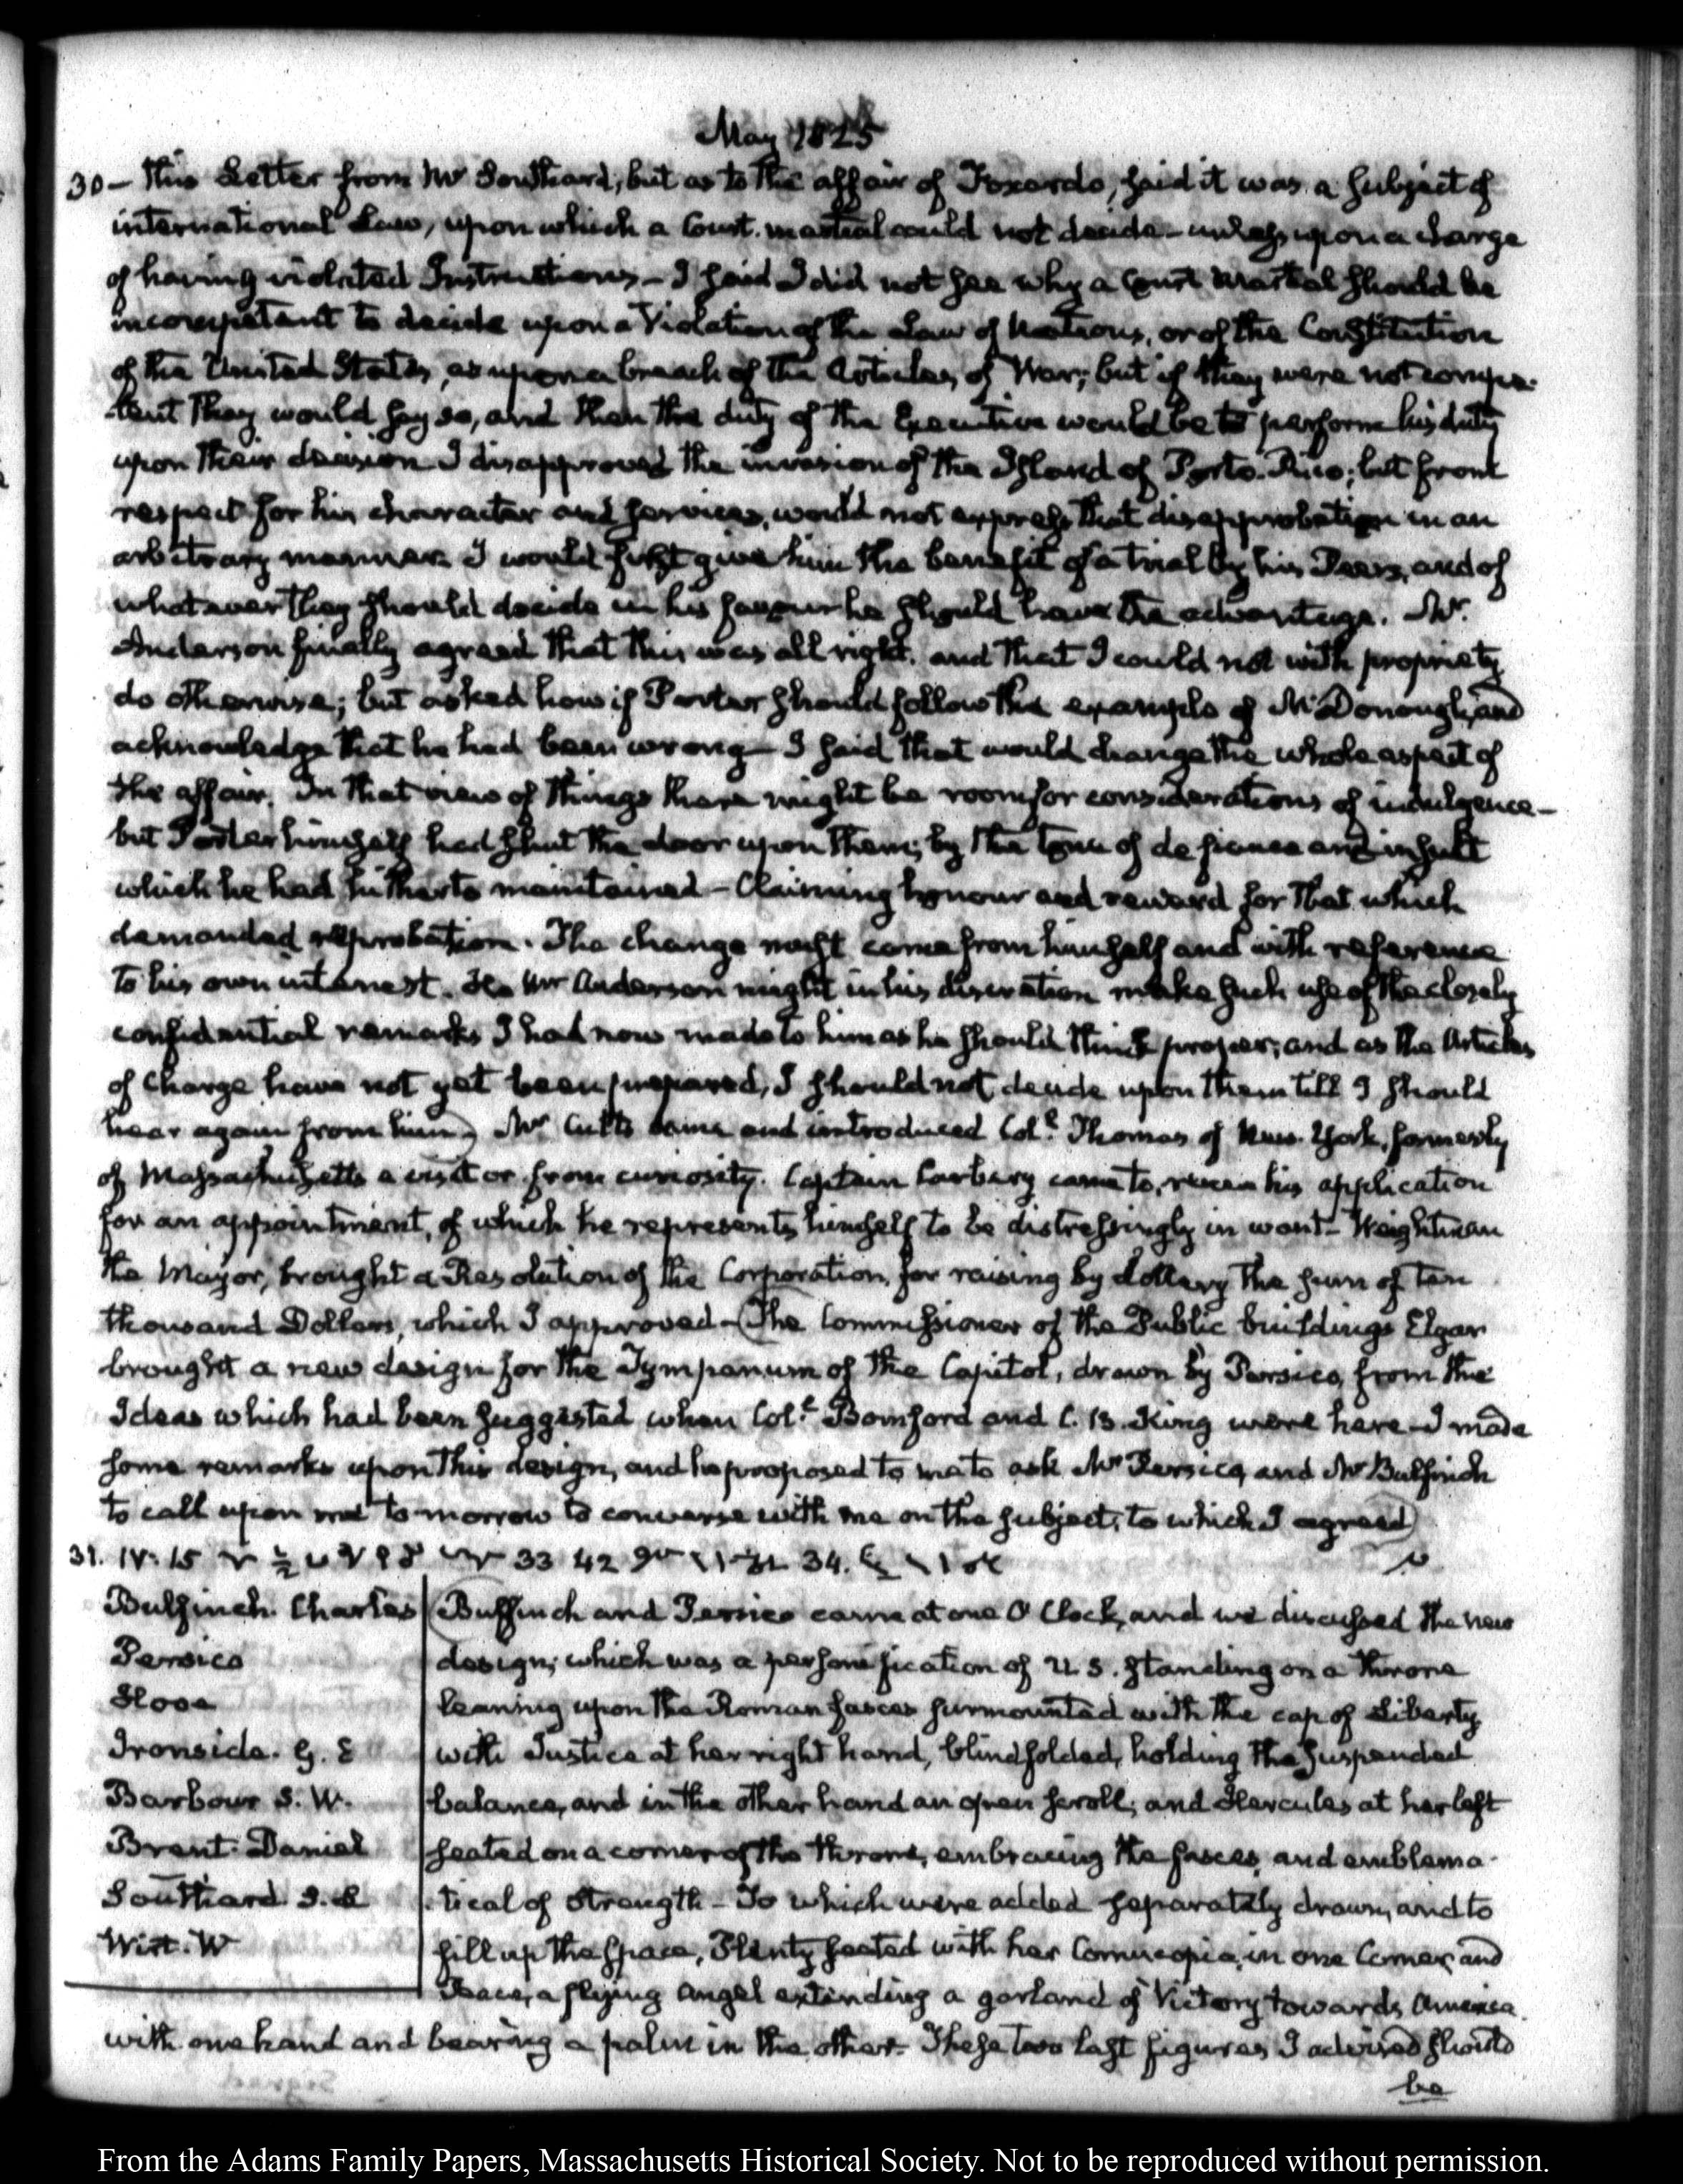 May 1825
30 — This Letter from Mr Southard, but as to the affair of Foxardo, said it was a subject of
international Law, upon which a Court-martial could not decide — unless upon a charge
of having violated Instructions — I said I did not see why a Court Martial should be
incompetent to decide upon a Violation of the Law of Nations, or of the Constitution
of the United States, as upon a breach of the Articles of War; but if they were not compe-
-tent they would say so, and then the duty of the Executive would be to perform his duty
upon their decision I disapproved the invasion of the Island of Porto-Rico; but from
respect for his character and services, would not express that disapprobation in an
arbitrary manner. I would first give him the benefit of a trial by his Peers, and of
whatever they should decide in his favour he should have the advantage. Mr.
Anderson finally agreed that this was all right, and that I could not with propriety
do otherwise; but asked how if Porter should follow the example of McDonough, and
acknowledge that he had been wrong — I said that would change the whole aspect of
the affair. In that view of things there might be room for considerations of indulgence —
but Porter himself had shut the door upon them; by the tone of defiance and insult
which he had hitherto maintained — Claiming honour and reward for that which
demanded reprobation. The change must come from himself and with reference
to his own interest. He Mr Anderson might in his discretion make such use of the closely
confidential remarks I had now made to him as he should think proper; and as the Articles
of Charge have not yet been prepared, I should not decide upon them till I should
hear again from him) Mr Cutts came and introduced Col.l Thomas of New-York, formerly
of Massachusetts a visitor from curiosity. Captain Carbery came to renew his application
for an appointment, of which he represents himself to be distressingly in want — Weightman
the Mayor, brought a Resolution of the Corporation, for raising by lottery the sum of ten
thousand Dollars, which I approved — (The Commissioner of the Public buildings Elgar
brought a new design for the Tympanum of the Capitol, drawn by Persico, from the
Ideas which had been suggested when Col.l Bomford and C. B. King were here — I made
some remarks upon this design, and he proposed to me to ask Mr Persico, and Mr Bulfinch
to call upon me to-morrow to converse with me on the subject, to which I agreed)
31. IV. 15 33 42 34.
Bulfinch. Charles
Persico
Hove
Ironside. G. E
Barbour S. W.
Brent. Daniel
Southard. S. L
Wirt. W
(Bulfinch and Persico came at one O'Clock, and we discussed the new
design; which was a personification of U S. standing on a throne
leaning upon the Roman fasces surmounted with the cap of Liberty
with Justice at her right hand, blindfolded, holding the suspended
balance, and in the other hand an open scroll; and Hercules at her left
seated on a corner of the throne, embracing the fasces, and emblema-
-tical of Strength — To which were added separately drawn, and to
fill up the space, Plenty seated with her Cornucopia, in one Corner, and
Peace, a flying Angel extending a garland of Victory towards America
with one hand and bearing a palm in the other. These two last figures I advised should
be
From the Adams Family Papers, Massachusetts Historical Society. Not to be reproduced without permission.